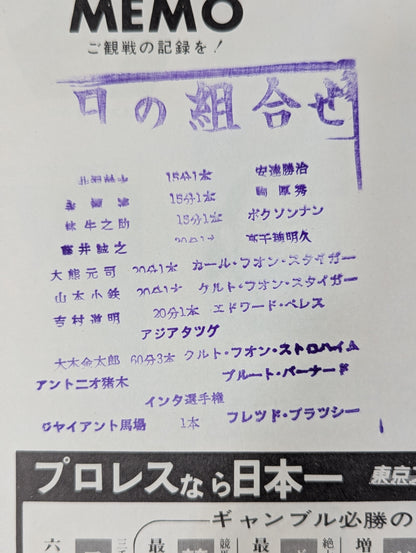 MEMO
ご観戦の記録を!
日の組合せ
15分1本 安達勝治
15分1本 駒厚秀
林牛之助 15分1本 ボクソンナン
藤井誠之 20分1本 高千穂明久
大熊元司 20分1本 カール・フオン・スタイガー
山本小鉄 20分1本 クルト・フオン・スタイガー
吉村道明 20分1本 エドワード・ペレス
アジアタツグ
大木金太郎 60分3本 クルト・フオン・ストロハイム
アントニオ猪木 ブルート・バーナード
インタ選手権
ジャイアント馬場 1本 フレツド・ブラツシー
プロレスなら日本一 東京
ギャンブル必勝の
六 三 最 競 最 絶 増